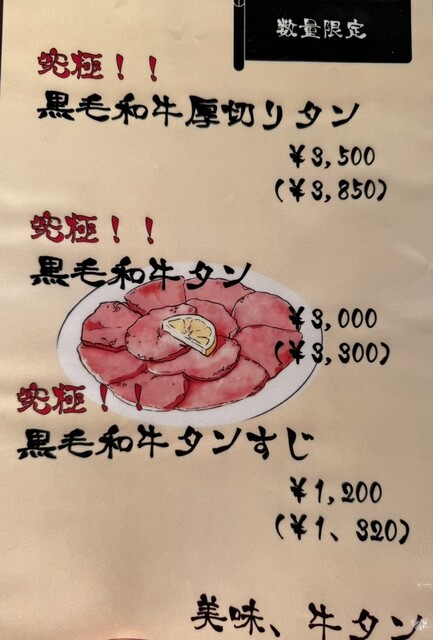 数量限定
究極！！
黒毛和牛厚切りタン
￥3,500
(￥3,850)
究極！！
黒毛和牛タン
￥3,000
(￥3,300)
究極！！
黒毛和牛タンすじ
￥1,200
(￥1、320)
美味、牛タン